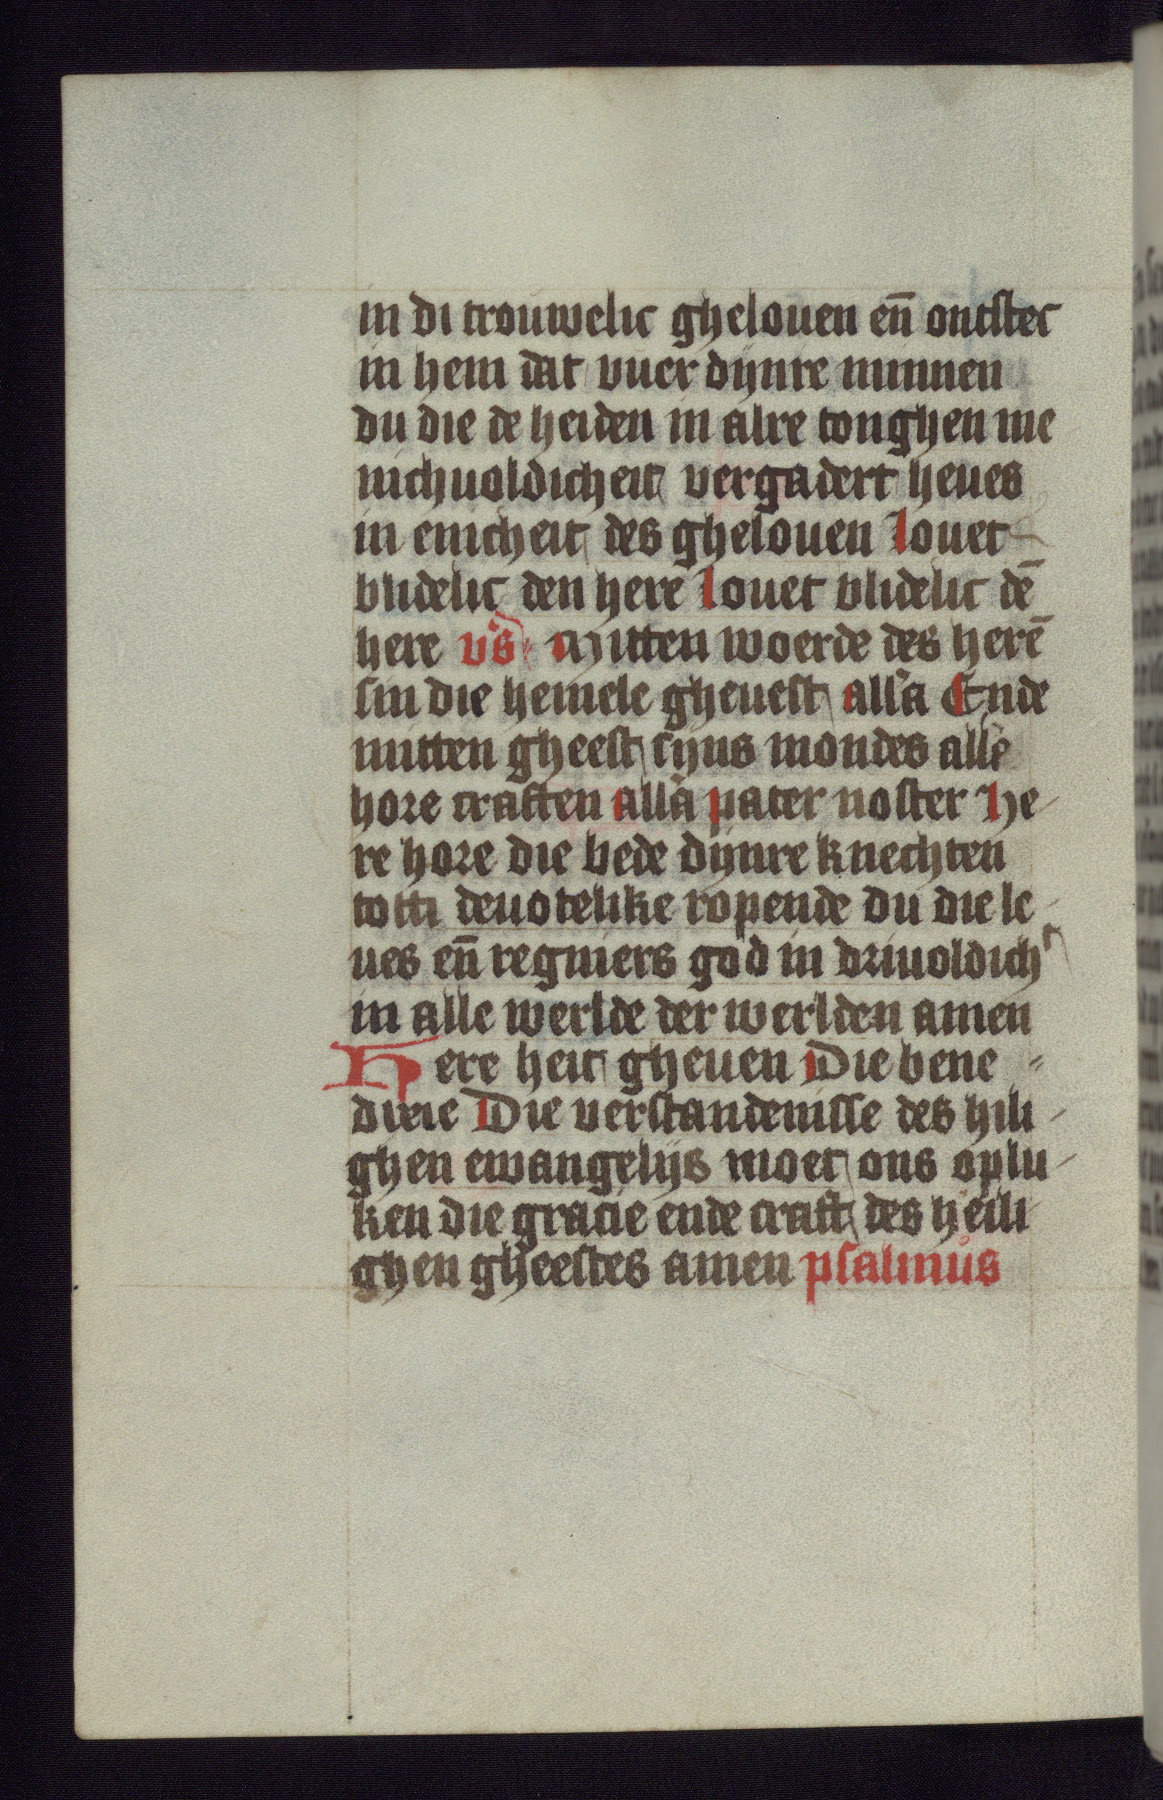 in di trouwelic ghelouen en̄ ontstec
in hem dat vuer dijnre minnen
du die de heiden in alre tonghen me
nichuoldicheit vergadert heues
in enicheit des ghelouen Louet
blidelic den here Louet blidelic dē
here vs Mitten woerde des herē
sin die hemele gheuest alla Ende
mitten gheest sijns mondes alle
hore craften alla pater noster He
re hore die bede dijnre knechten
totti deuotelike ropende du die le
ues en̄ regniers god in driuoldich
in alle werlde der werlden amen
Here heit gheuen Die bene
dixie Die verstandenisse des hili
ghen ewangelijs moet ons oplu
ken die gracie ende craft des heili
ghen gheestes amen psalmus